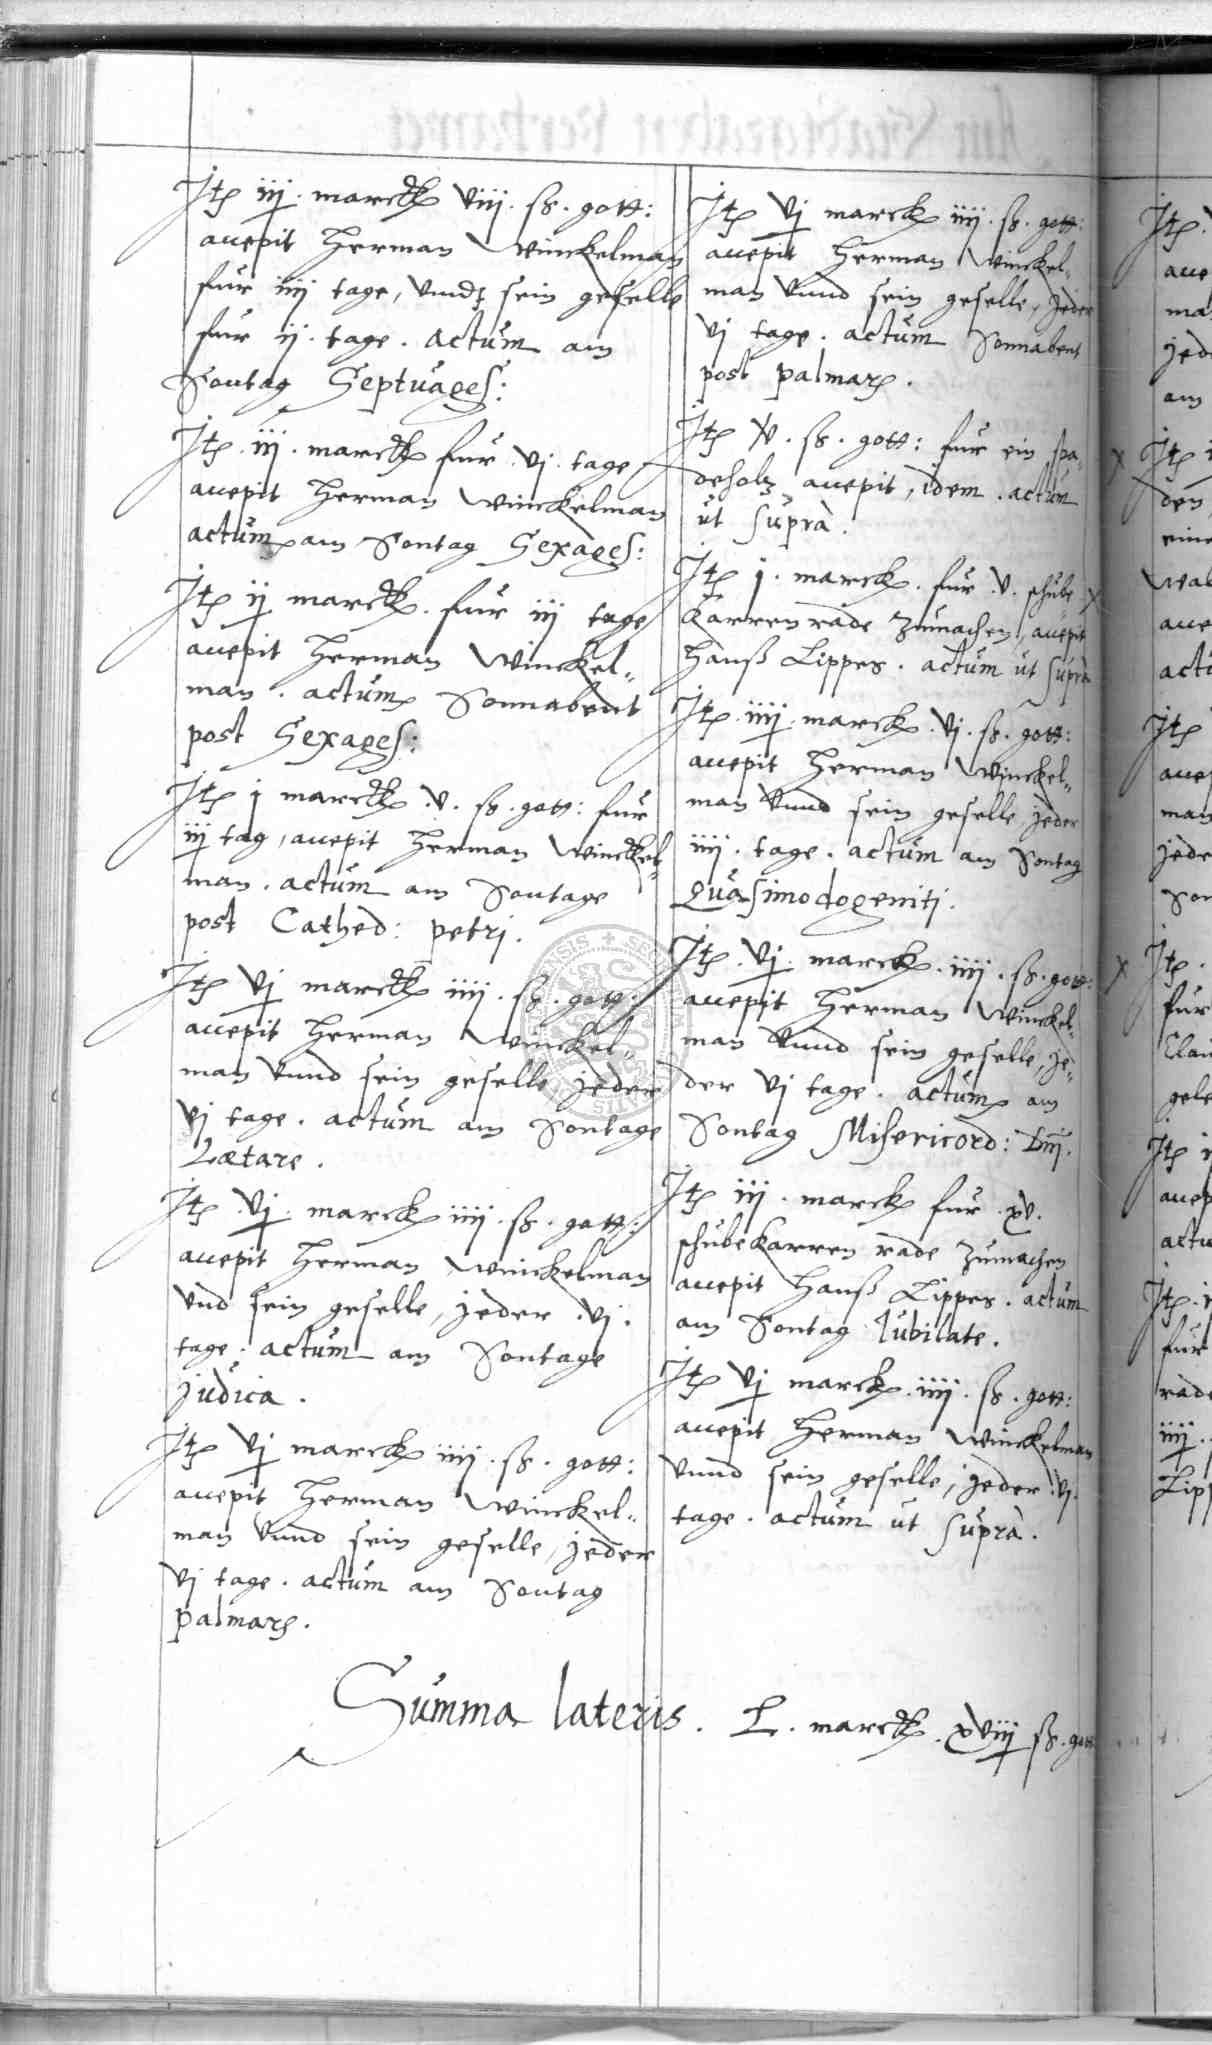 Itm iiij. marck viij. ß. gott:
accepit Herman Winckelman
fur iiij tage, Vundt sein geselle
fur ij. tage. actum am
Sontag Septuages:
Itm. iij. marck fur. vj. tage
accepit Herman Winckelman
actum am Sontag Sexages:
Itm ij marck. fur iij tage
accepit Herman Winckel-
man. actum Sonnabent
post Sexages:
Itm j marck. v. ß. gott: fur
iij tag, accepit Herman Winckel-
man. actum am Sontage
post Cathed: petri.
Itm vj marck iiij. ß. gott:
accepit Herman Winckel-
man Vnnd sein geselle jeder
vj tage. actum am Sontage
Lætare.
Itm. vj. marck iiij. ß. gott:
accepit Herman Winckelman
Vnd sein geselle, jeder. vj.
tage. actum am Sontage
judica.
Itm vj marck iiij. ß. gott:
accepit Herman Winckel-
man Vnnd sein geselle, jeder
vj tage. actum am Sontag
palmarum.
Itm vj marck iiij. ß. gott:
accepit Herman Winckel-
man Vnnd sein geselle, jeder
vj tage. actum Sonnabent
post palmarum.
Itm v. ß. gott: fur ein spa-
deholz accepit, idem. actum
ut suprà.
Itm j. marck. fur. v. schube
Karren rade zumachen, accepit
Hanß Lippes. actum ut suprà
Itm. iiij. marck. vj. ß. gott:
accepit Herman Winckel-
man Vnnd sein geselle, jeder
iiij. tage. actum am Sontag
Quasimodogeniti.
Itm. vj. marck. iiij. ß. gott:
accepit Herman Winckel-
man Vnnd sein geselle, je-
der vj tage. actum am
Sontag Misericord: Dni.
Itm iij. marck fur. xv.
schubeKarren rade zumachen
accepit Hanß Lippes. actum
am Sontag Iubilate.
Itm vj marck. iiij. ß. gott:
accepit Herman Winckelman
Vnnd sein geselle, jeder. vj.
tage. actum ut suprà.
Summa lateris. L. marck. xviij ß. gott